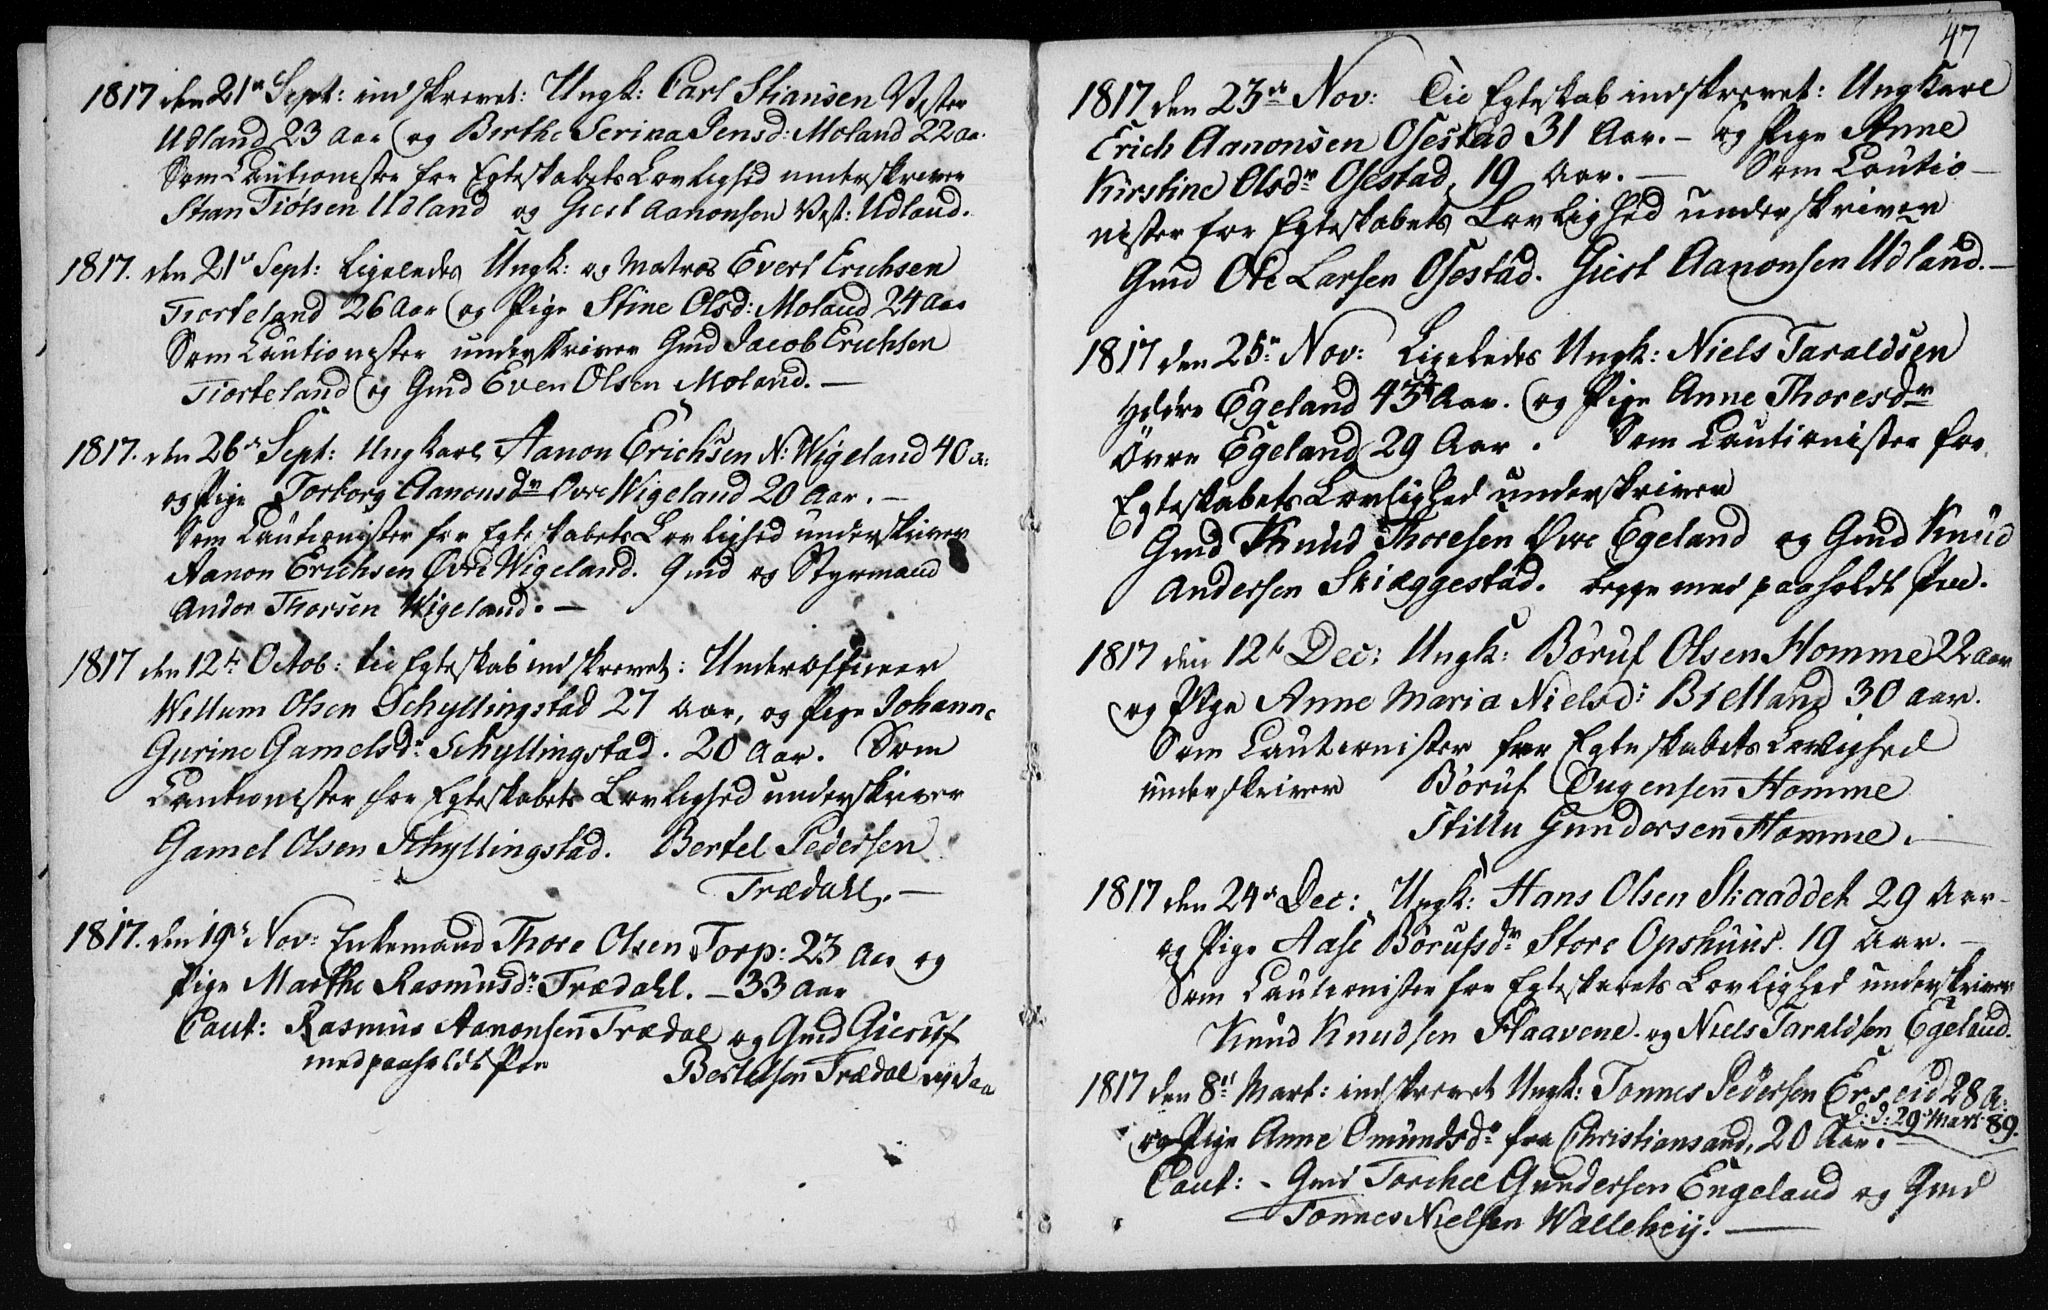 1817 den 21de Sept: indskrevet: Ungk: Carl Stiansen Vester
Udland 23 Aar og Berthe Serina Jensd: Moland 22 Aar
Som Cautionister for Egteskabets Lovlighed underskriver
Stian Tiölsen Udland og Giert Aanonsen Vest: Udland.
1817. den 21de Sept: Ligeledes Ungk: og Matros Evert Erichsen
Tiorteland 26 Aar og Pige Stine Olsd: Moland 24 Aar
Som Cautionister underskriver Gmd Jacob Erichsen
Tiorteland og Gmd Even Olsen Moland. —
1817. den 26de Sept: Ungkarl Aanon Erichsen N: Wigeland 40 A:
og Pige Torborg Aanonsdr Øvre Wigeland 20 Aar. —
Som Cautionister for Egteskabets Lovlighed underskriver
Aanon Erichsen Øvre Wigeland. Gmd og Styrmand
Andor Thorsen Wigeland. —
1817 den 12te Octob: til Egteskab indskrevet: Underofficeer
Willum Olsen Schyllingstad 27 Aar, og Pige Johanne
Gurine Gamelsdr: Schyllingstad. 20 Aar. Som
Cautionister for Egteskabets Lovlighed underskriver
Gamel Olsen Schyllingstad. Bertel Pedersen
Trædahl. —
1817. den 19de Nov: Enkemand Thore Olsen Torp: 23 Aar og
Pige Marthe Rasmusdr: Trædahl. — 33 Aar
Caut: Rasmus Aanonsen Trædal og Gmd Gieruf
med paaholdt Pen Bertelsen Trædal
47
1817 den 23de Nov: Til Egteskab indskrevet: Ungkarl
Erich Aanonsen Osestad 31 Aar. — og Pige Anne
Kirstine Olsdr Osestad, 19 Aar. — Som Cautio-
nister for Egteskabets Lovlighed underskriver
Gmd Ole Larsen Osestad. Giert Aanonsen Udland. —
1817 den 25de Nov: Ligeledes Ungk: Niels Taraldsen
Ydre Egeland 43 Aar. og Pige Anne Thoresdr
Øvre Egeland 29 Aar. Som Cautionister for
Egteskabets Lovlighed underskriver
Gmd Knud Thoresen Øvre Egeland og Gmd Knud
Andersen Skiæggestad. begge med paaholdt Pen.
1817 den 12te Dec: Ungk: Böruf Olsen Homme 22 Aar
og Pige Anne Maria Nielsd: Bielland 30 Aar.
Som Cautionister for Egteskabets Lovlighed
underskriver Böruf Ougensen Homme
Stillu Gundersen Homme. —
1817 den 24de Dec: Ungk: Hans Olsen Skaaddet 29 Aar —
og Pige Aase Börufsdr Store Opshuus 19 Aar. —
Som Cautionister for Egteskabets Lovlighed underskriver
Knud Knudsen Flaavene. og Niels Taraldsen Egeland.
1817 den 8de Mart: indskrevet Ungk: Tonnes Pedersen Erseid 28 A:
d: d: 29 Mart 89.
og Pige Anne Omundsdr fra Christiansand, 20 Aar.
Caut: - Gmd Torchel Gundersen Engeland og Gmd
Tonnes Nielsen Walleheij. —